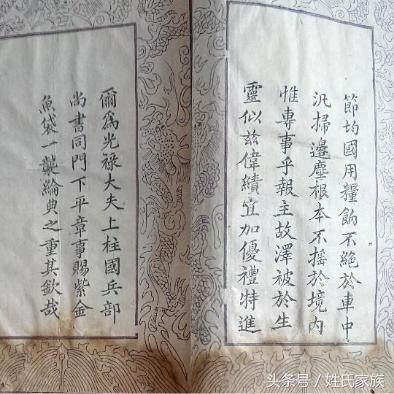 節均國用糧餉不絕於車中
汛掃邊塵根本不搖於境內
惟專事乎報主故澤被於生
靈似茲偉績宜加優禮特進
爾為光祿大夫上柱國兵部
尚書同門下平章事賜紫金
魚袋一襲綸典之重其欽哉
头条号/姓氏家族